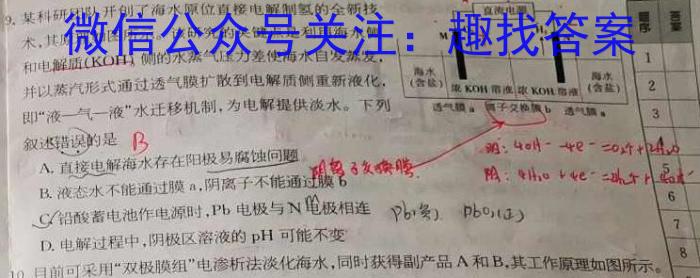 9. 某科研团队开创了海水原位直接电解制氢的全新技
术,其
微信公众号关注：趣找答案
和电解质(KOH)侧的水蒸气压力差使海水自发蒸发,
并以蒸汽形式通过透气膜扩散到电解质侧重新液化,
即“液一气一液”水迁移机制,为电解提供淡水。下列
叙述错误的是 B
A. 直接电解海水存在阳极易腐蚀问题
B. 液态水不能通过膜a,阴离子不能通过膜b
C. 铅酸蓄电池作电源时,Pb电极与N电极相连
D. 电解过程中,阴极区溶液的pH可能不变
10. 目前可采用“双极膜组”电渗析法淡化海水,同时获得副产品A和B,其工作原理如图所示。
直流电源
M
海水
(含盐)
浓KOH溶液
浓KOH溶液
海水
(含盐)
透气膜a
离子交换膜b
透气膜a
阴离子交换膜
Pb(负) PbO₂(正)
题号
答案
1
2
3
4
5
6
7
8